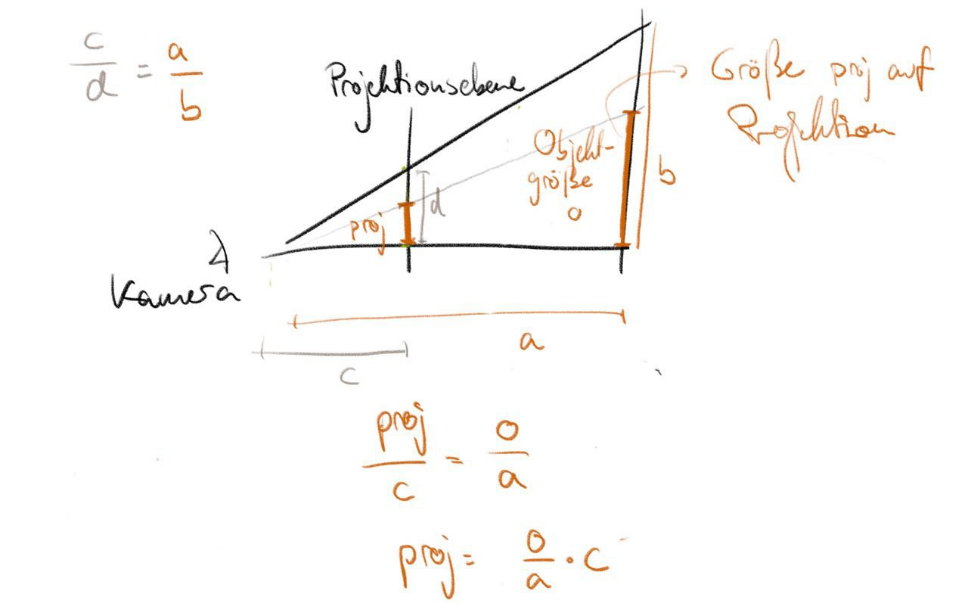 c/d = a/b
Projektionsebene
Größe proj auf
Projektion
Objekt-
größe
o
b
d
proj
Kamera
a
c
proj/c = o/a
proj = o/a · c